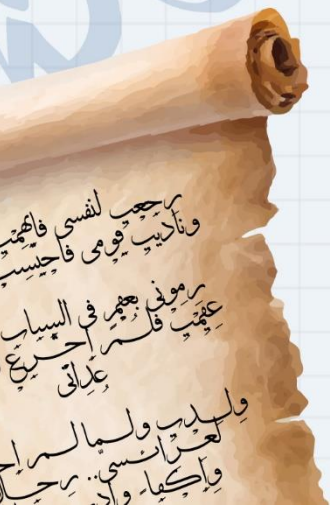 رجعت لنفسي فاتهمت
وناديت قومي فاحتسبت
رموني بعقم في الشباب
عقمت فلم اجزع
عداتى
ولدت ولما لم
لعرائسي.. رجال
وأكفاء